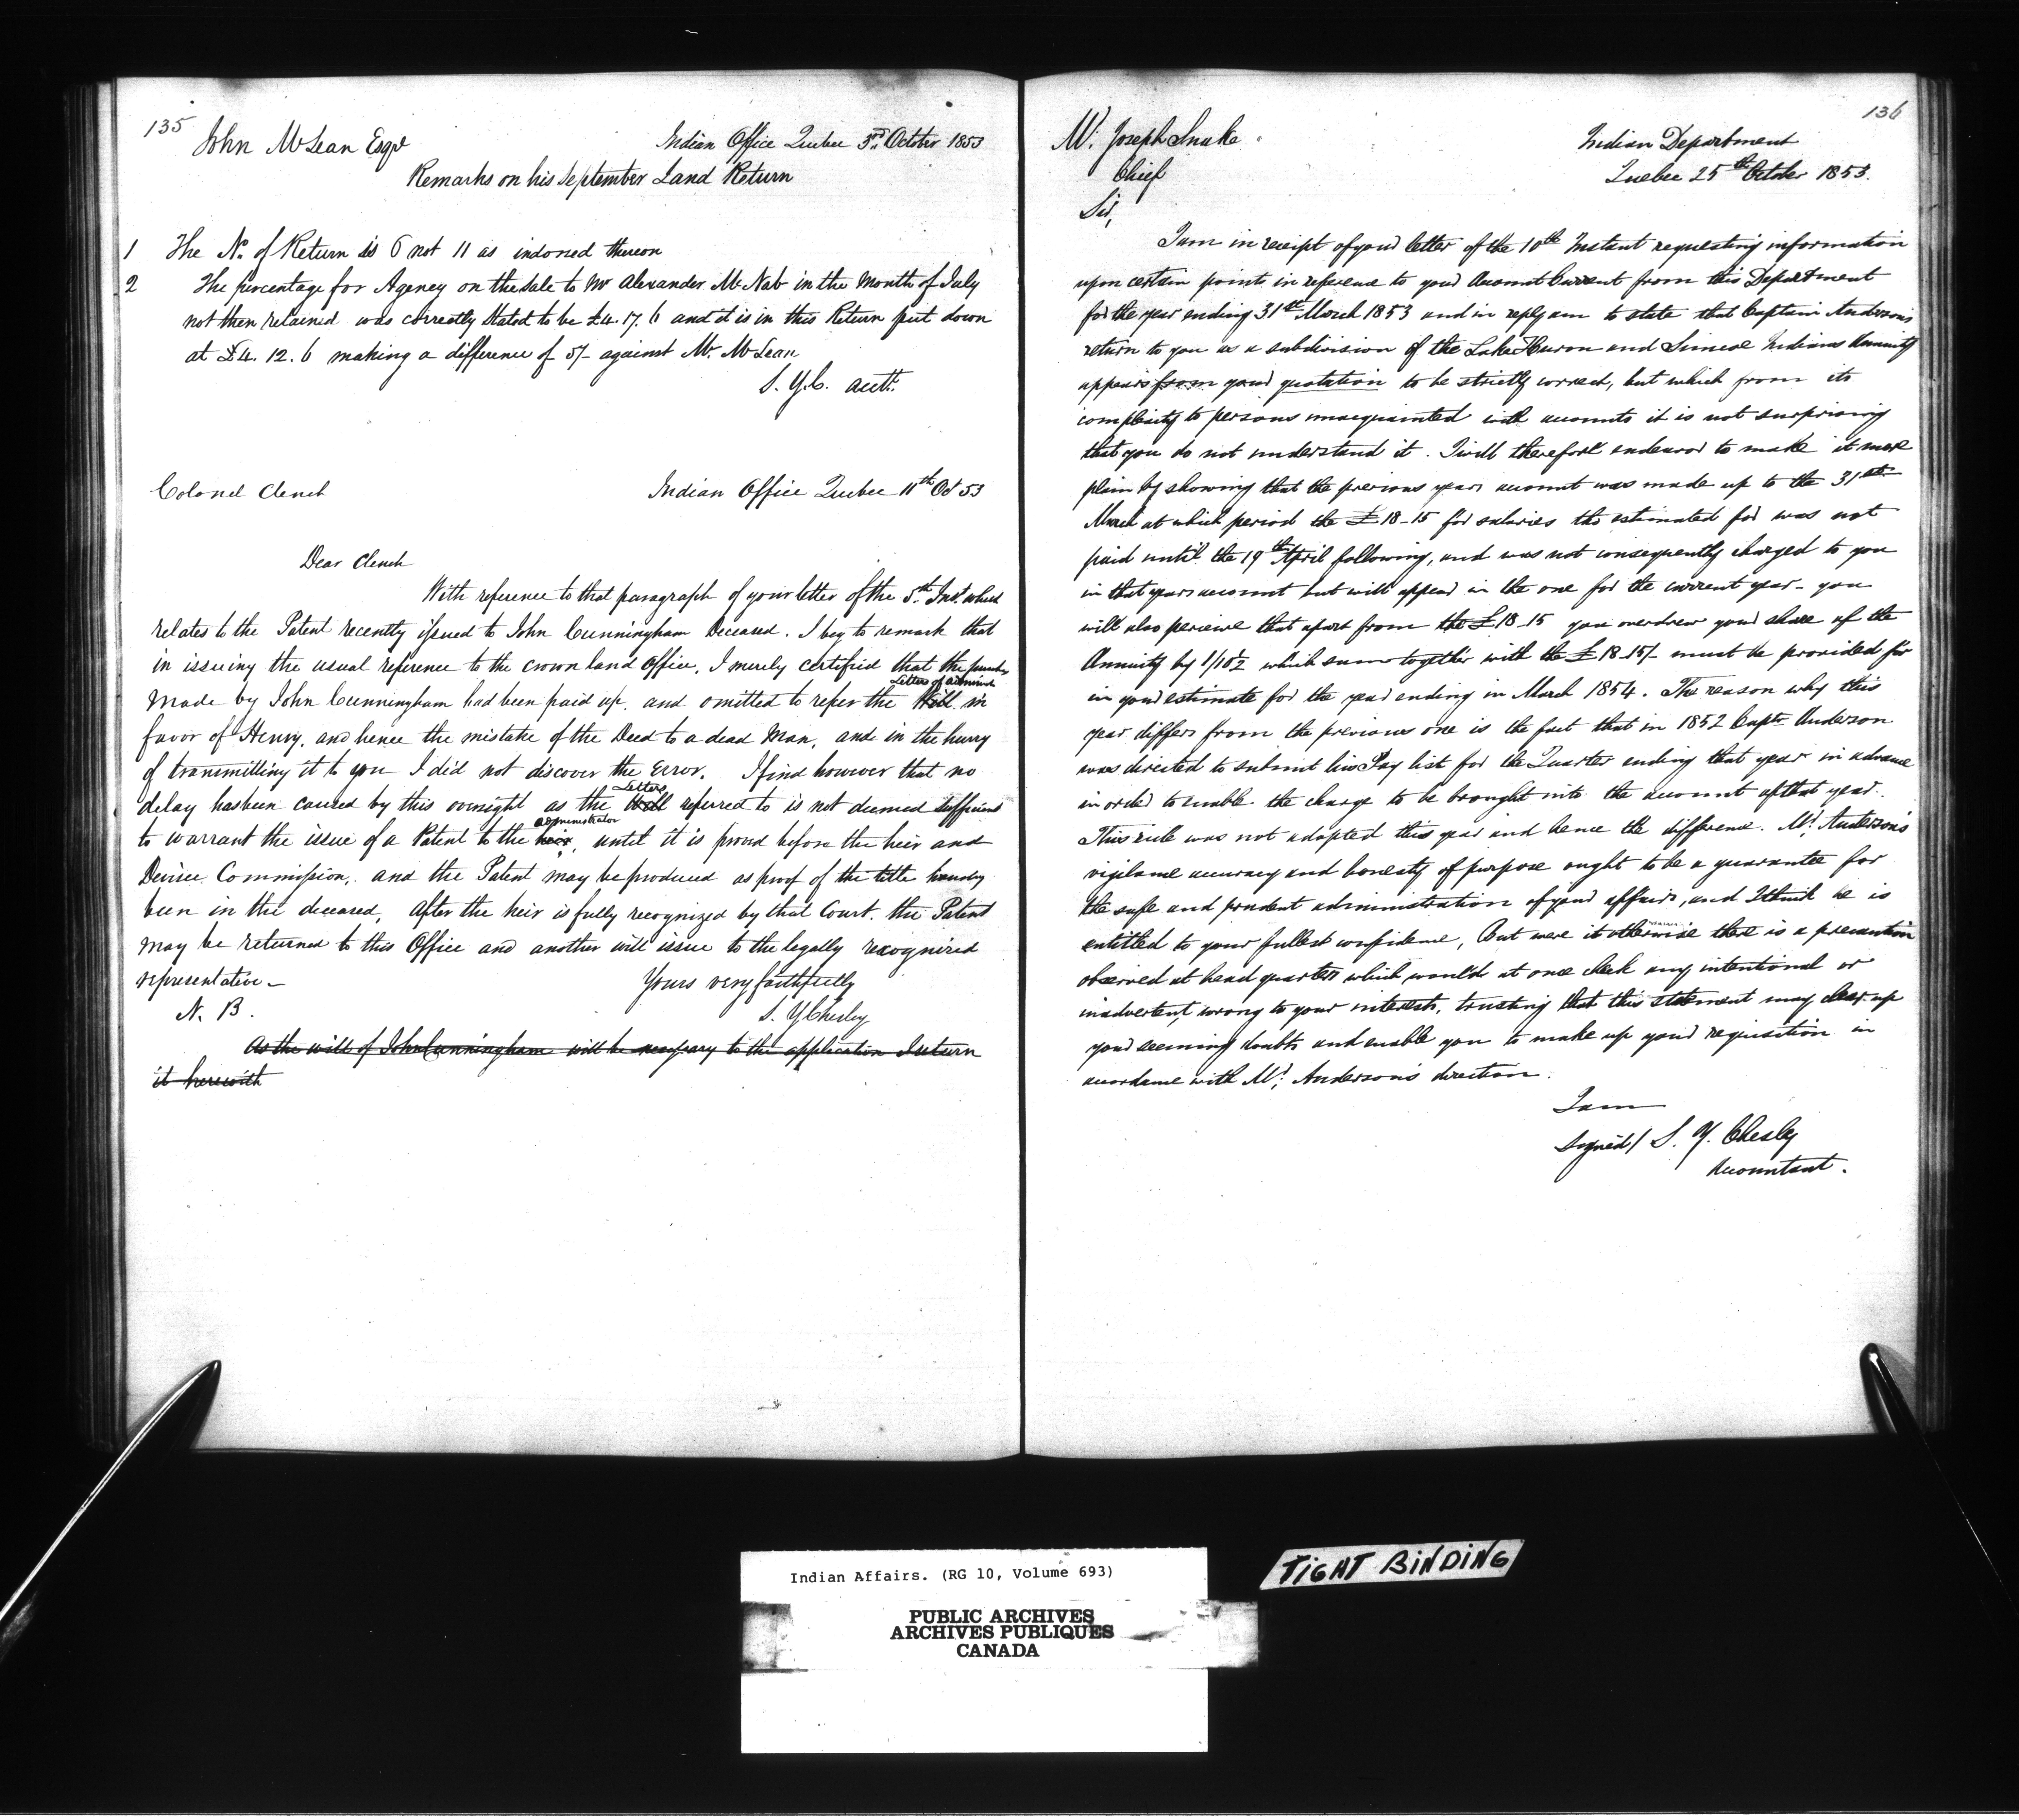 135
John McLean Esqr
Indian Office Quebec 3rd October 1853
Remarks on his September Land Return
1 The No. of Return is 6 not 11 as indorsed thereon
2 The percentage for Agency on the Sale to Mr Alexander McNab in the Month of July
not then retained was correctly stated to be £4.17.6 and it is in this Return put down
at £4.12.6 making a difference of 5/- against Mr. McLean
S. Y. C. acctt.
Colonel Clench
Indian Office Quebec 11th Oct 53
Dear Clench
With reference to that paragraph of your letter of the 5th Inst. which
relates to the Patent recently issued to John Cunningham Deceased. I beg to remark that
in issuing the usual reference to the crown land Office, I merely certified that the purchase
Letters of administ
Made by John Cunningham had been paid up, and omitted to refer the Will in
favor of Henry, and hence the mistake of the Deed to a dead Man, and in the hurry
of transmitting it to you I did not discover the Error. I find however that no
Letters
delay has been caused by this oversight as the Will referred to is not deemed sufficient
administrator
to warrant the issue of a Patent to the heir, until it is proved before the heir and
Devisee Commission, and the Patent may be produced as proof of the title having
been in the deceased, After the heir is fully recognized by that Court. the Patent
may be returned to this Office and another will issue to the legally recognized
representative -
Yours very faithfully
N. B.
S. Y Chesley
As the will of John Cunningham will be necessary to the application I return
it herewith
136
Mr. Joseph Snake
Chief
Indian Department
Quebec 25th October 1853.
Sir,
I am in receipt of your letter of the 10th Instant requesting information
upon certain points in reference to your Account Current from this Department
for the year ending 31st March 1853 and in reply am to state that Captain Anderson's
return to you as a subdivision of the Lake Huron and Simcoe Indians Annuity
appears from your quotation to be strictly correct, but which from its
complexity to persons unacquainted with accounts it is not surprising
that you do not understand it. I will therefore endeavor to make it more
plain by showing that the previous years account was made up to the 31st
March at which period the £18-15 for salaries tho estimated for was not
paid until the 19th April following, and was not consequently charged to you
in that years account but will appear in the one for the current year - you
will also perceive that apart from the £18-15 you overdrew your share of the
Annuity by 1/10½ which sum together with the £18-15/- must be provided for
in your estimate for the year ending in March 1854. The reason why this
year differs from the previous one is the fact that in 1852 Capt. Anderson
was directed to submit his Pay list for the Quarter ending that year in advance
in order to enable the charge to be brought into the account of that year.
This rule was not adopted this year and hence the difference. Mr. Anderson's
vigilance accuracy and honesty of purpose ought to be a guarantee for
the safe and prudent administration of your affairs, and I think he is
entitled to your fullest confidence, But were it otherwise there is a precaution
observed at head quarters which would at once check any intentional or
inadvertent wrong to your interests, trusting that this statement may clear up
your seeming doubts and enable you to make up your requisition in
accordance with Mr. Anderson's direction.
I am
Signed/ S. Y. Chesley
Accountant.
Indian Affairs. (RG 10, Volume 693)
PUBLIC ARCHIVES
ARCHIVES PUBLIQUES
CANADA
TIGHT BINDING